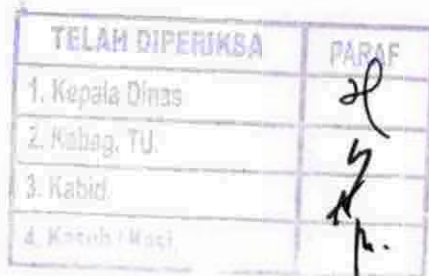 TELAH DIPERIKSA PARAF
1. Kepala Dinas
2. Kabag. TU.
3. Kabid.
4. Kasub / Kasi.